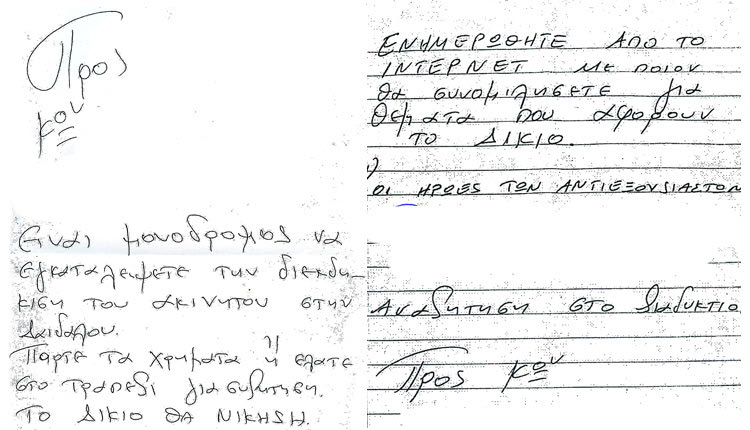 Προς
κον
Ειναι μονοδρομος να
εγκαταλειψετε την διεκδι-
κιση του ακινητου στην
Δαιδαλου.
Παρτε τα χρηματα ή ελατε
στο τραπεζι για συζητηση.
ΤΟ ΔΙΚΙΟ ΘΑ ΝΙΚΗΣΗ.
ΕΝΗΜΕΡΩΘΗΤΕ ΑΠΟ ΤΟ
ΙΝΤΕΡΝΕΤ ΜΕ ΠΟΙΟΝ
θα συνομιλησετε για
θεματα που αφορουν
ΤΟ ΔΙΚΙΟ.
ΟΙ ΗΡΩΕΣ ΤΩΝ ΑΝΤΙΕΞΟΥΣΙΑΣΤΩΝ
Αναζητηση στο διαδυκτιο
Προς κον